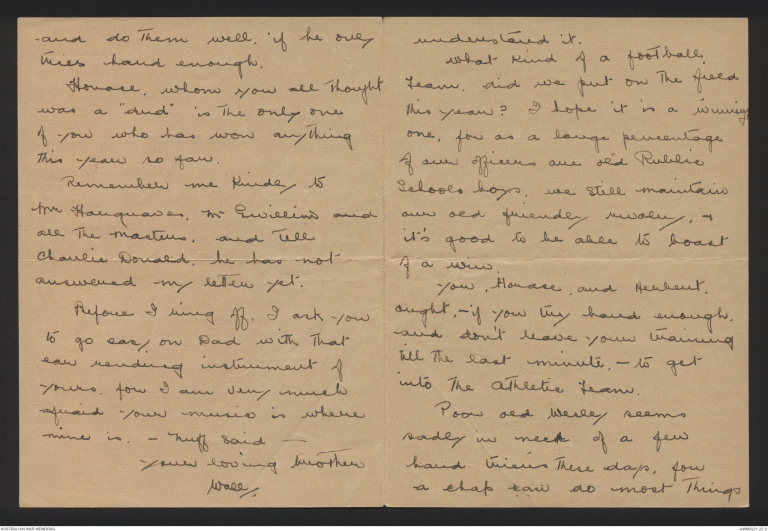 and do them well, if he only
tries hard enough.
Horace, whom you all thought
was a "dud" is the only one
of you who has won anything
this year so far.
Remember me kindly to
Mr Hargraves, Mr Gwillim and
all the masters, and tell
Charlie Donald, he has not
answered my letter yet.
Before I ring off, I ask you
to go easy on Dad with that
ear rending instrument of
yours, for I am very much
afraid your music is where
mine is. – Nuff Said —
your loving brother
Wally.
understand it.
What kind of a football
team did we put on the field
this year? I hope it is a winning
one, for as a large percentage
of our officers are old Public
Schools boys, we still maintain
our old friendly rivalry, +
it's good to be able to boast
of a win.
You, Horace, and Herbert,
ought, – if you try hard enough,
and don't leave your training
till the last minute, – to get
into the Athletic Team.
Poor old Wesley seems
sadly in need of a few
hard triers these days, for
a chap can do most things
AUSTRALIAN WAR MEMORIAL